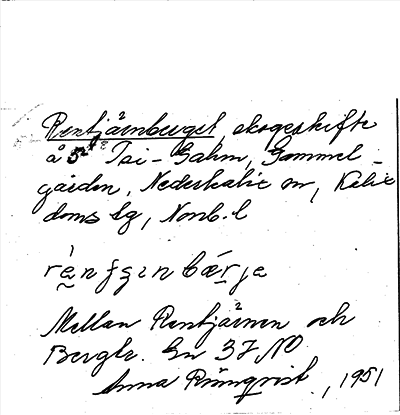 Rentjärnberget, skogsskifte
å 5 Tsi - Gahm, Gammel -
gården, Nederkalix sn, Kalix
doms lg, Norrb. l
Mellan Rentjärnen och
Bergtr. En 37 NO
Anna Rönnqvist, 1951